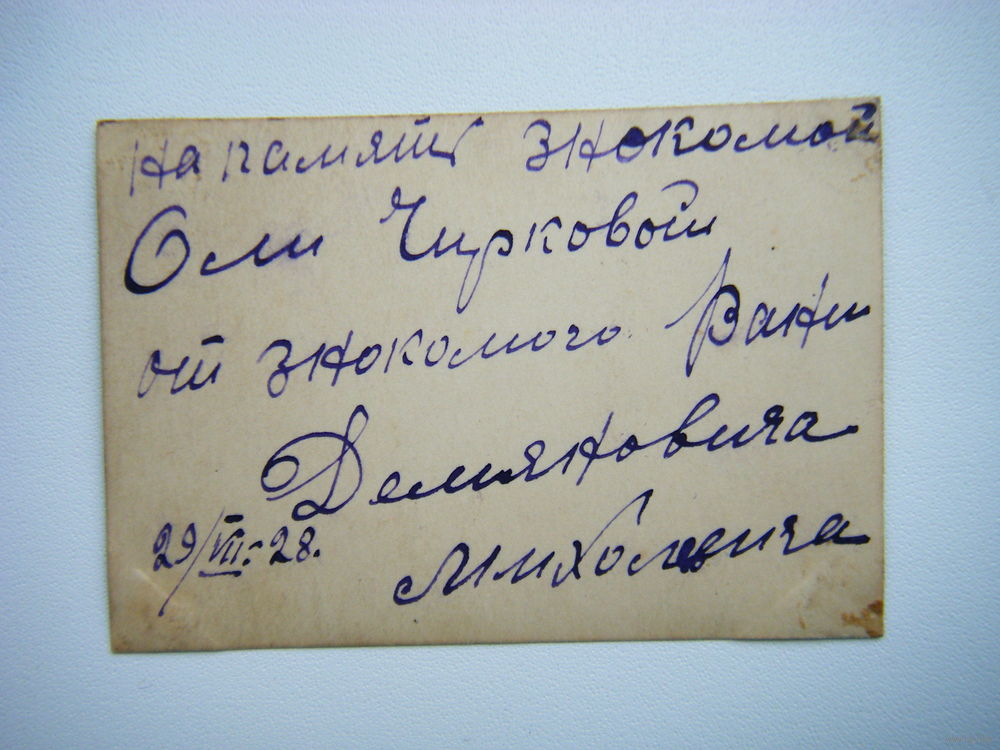 на память знокомой
Оли Чирковой
от знокомого Вани
Демяновича
29/VII:28. Михолевича